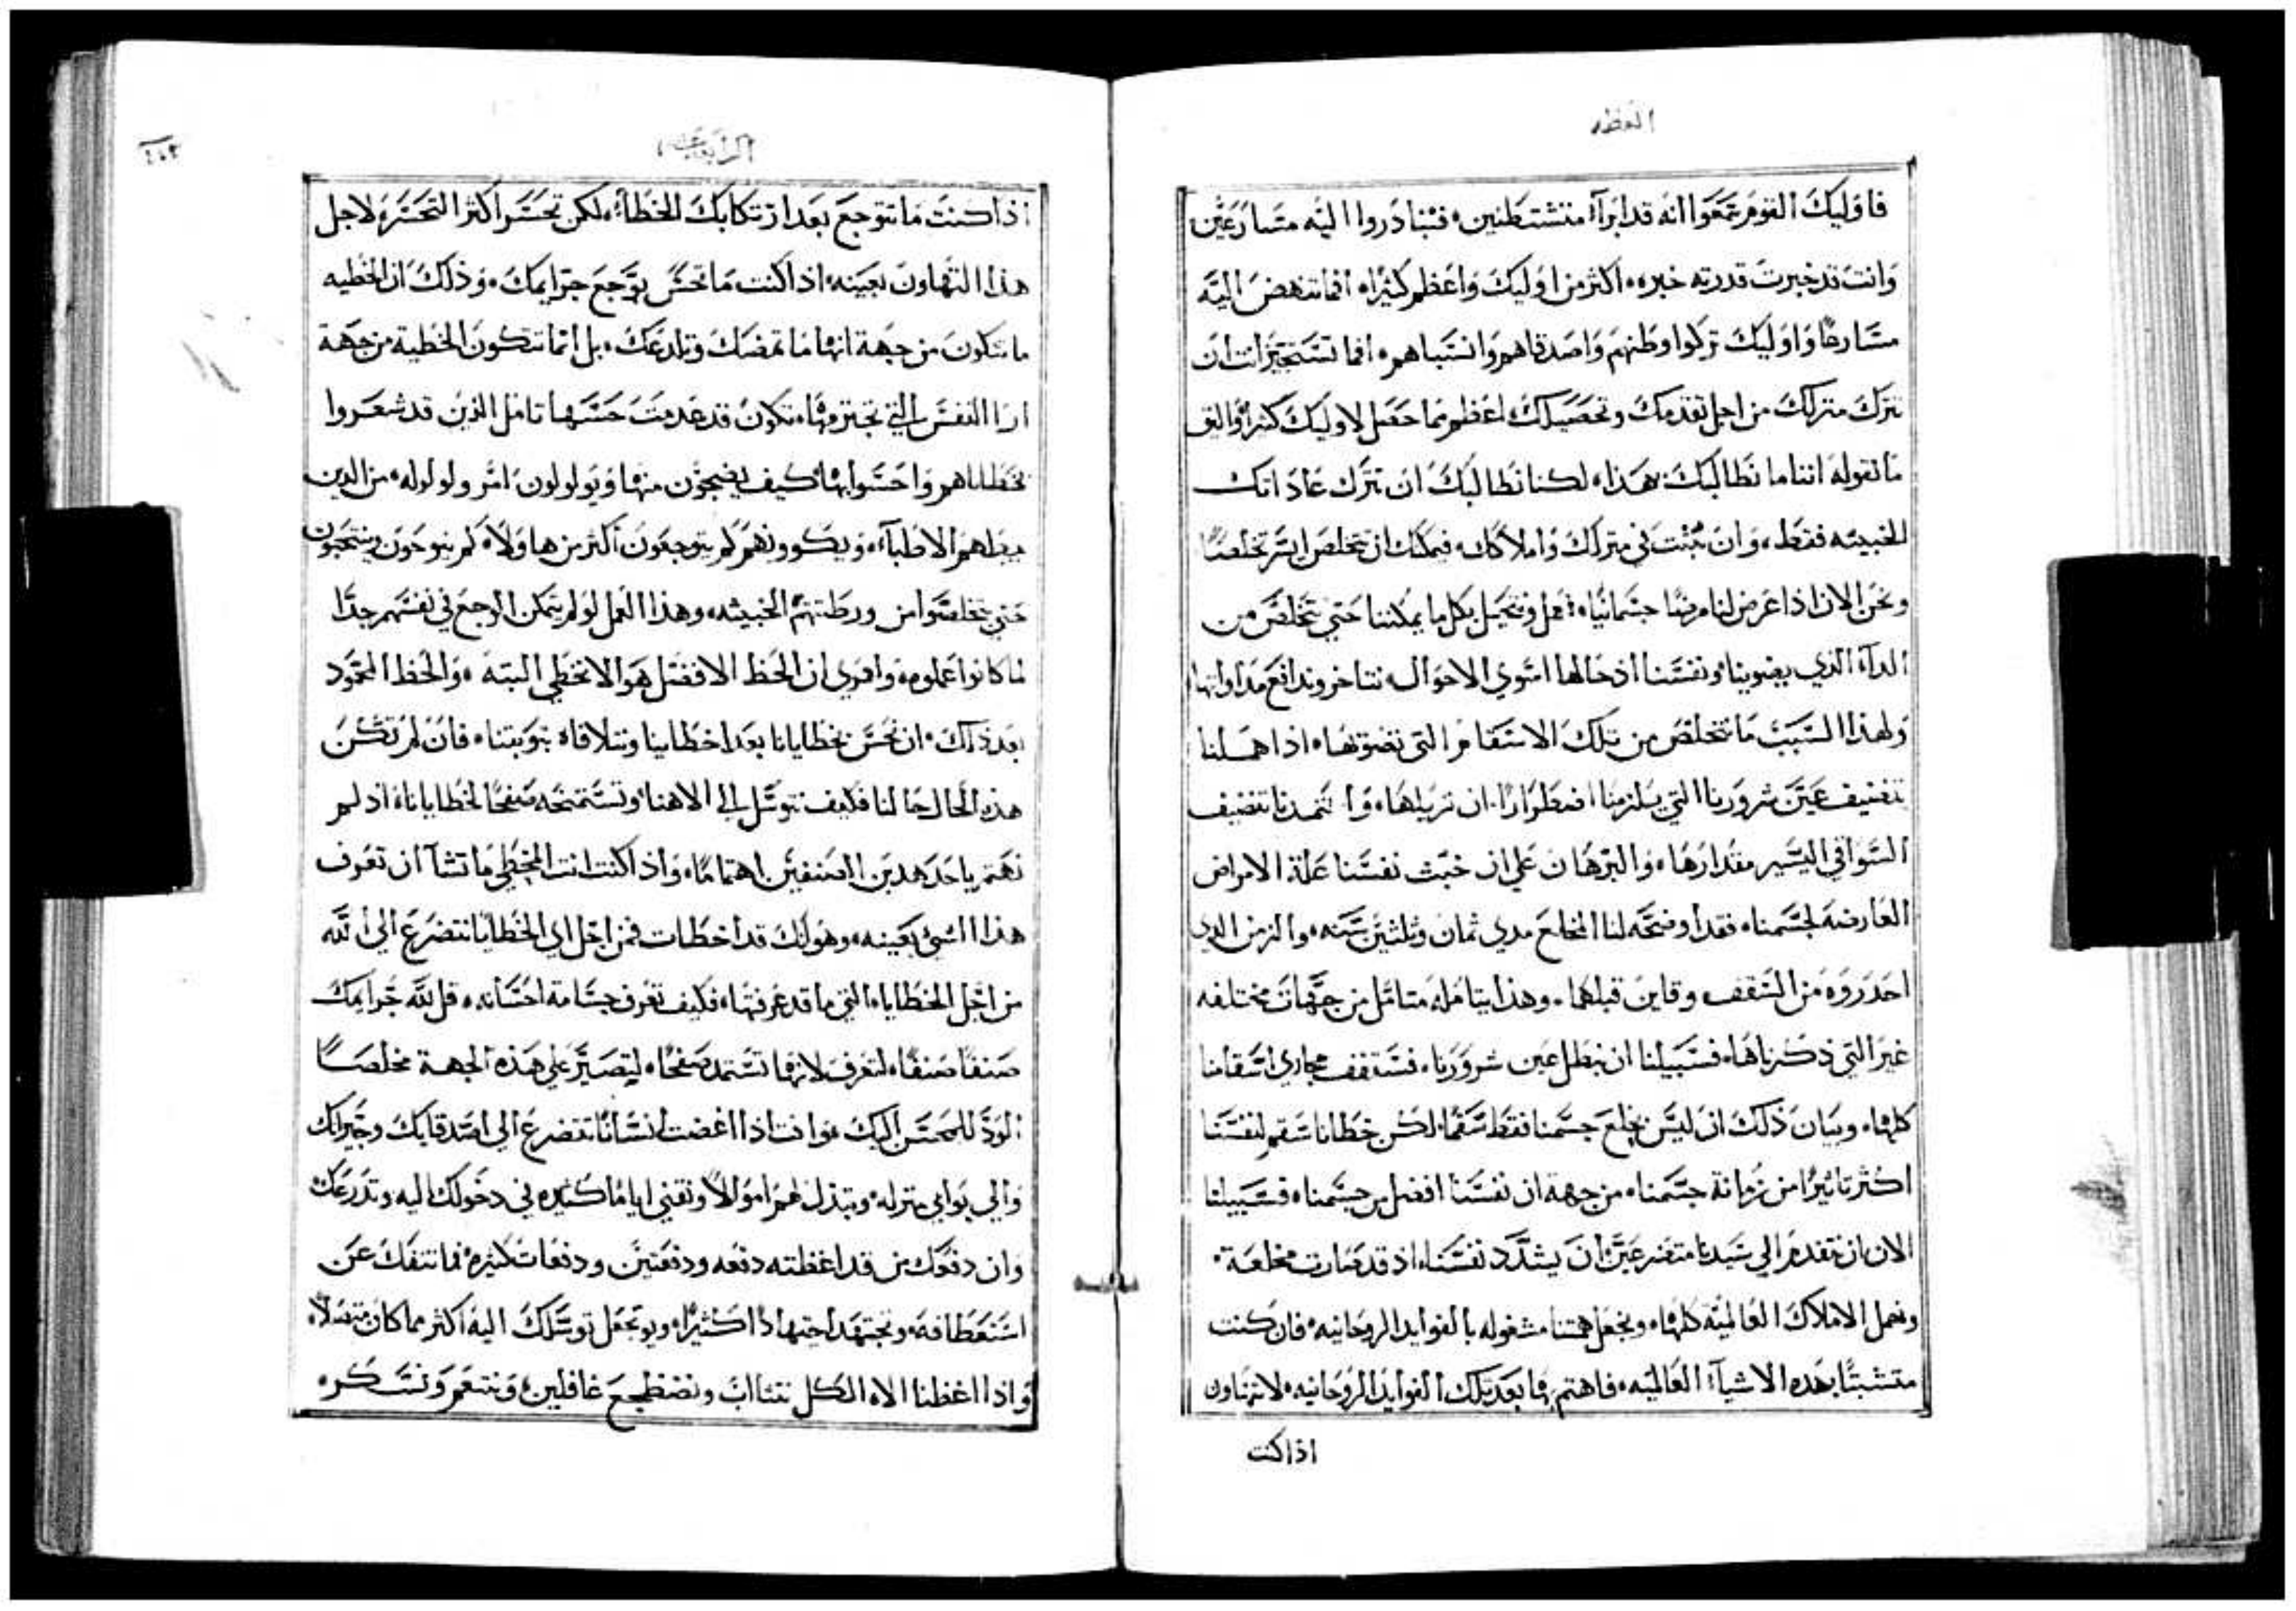 العظه
فاوليك القوم سمعوا انه قد ابرآ متشيطنين فتبادروا اليه متسارعين
وانت قد خبرت قدرته خبره اكثر من اوليك واعظم كثيرًا افما تنهض اليه
مسارعًا واوليك تركوا وطنهم واصدقاهم وانسباهم افما تستجيز انت ان
تترك منزلك من اجل تقدمك وتحصيلك اعظم مما حصل لاوليك كثيرًا واليق
ما نقوله اننا ما نطالبك بهذا لكنا نطالبك ان تترك عاداتك
الخبيثه فقط وان تبت في منزلك واملاكك فيمكنك ان تتخلص ايسر تخلصًا
ونحن الان اذا عرض لنا مرضًا جسمانيًا نعمل ونتحيل بكل ما يمكننا حتي نتخلص من
الدآء الذي يضوينا ونفسنا اذ حالها اسوي الاحوال نتاخر وندافع مداواتها
ولهذا السبب ما نتخلص من تلك الاسقام التي نضوتها اذا هملنا
تنضيف عين شرورنا التي يلزمنا اضطرارًا ان نزيلها وا نتمدنا تنضيف
السواقي اليسير مقدارها والبرهان علي ان خبث نفسنا علة الامراض
العارضه لجسمنا فقد اوضحه لنا المخلع مدي ثمان وثلثين سنه والزمن الذي
احدروه من السقف وقاين قبلهما وهذا يتامله متامل من جهات مختلفه
غير التي ذكرناها فسبيلنا ان نبطل عين شرورنا فستقف مجاري اسقامنا
كلها وبيان ذلك ان ليس يخلع جسمنا فقط سقمًا لكن خطانا سقم لنفسنا
اكثر تاثيرًا من زمانة جسمنا من جهة ان نفسنا افضل من جسمنا فسبيلنا
الان ان نتقدم الي سيدنا متضرعين ان يشدد نفسنا اذ قد صارت مخلعة
ونهمل الاملاك العالميه كلها ونجعل همتنا مشغوله بالفوايد الروحانيه فان كنت
متشبثًا بهذه الاشيآء العالميه فاهتم فيما بعد بتلك الفوايد الروحانيه لا تتهاون
اذا كنت
الرابعه عشر
اذا كنت ما تتوجع بعد ارتكابك الخطآء لكن تحسر اكثر التحسر لاجل
هذا التهاون بعينه اذا كنت ما تحس بوجع جرايمك وذلك ان الخطيه
ما تتكون من جهة انها ما تمضك وتلدغك بل انما تتكون الخطية من جهة
ان النفس التي تجترمها تكون قد عدمت حسها تامل الذين قد شعروا
بخطاياهم واحسوا بها كيف يضجون منها ويولولون امر ولولوله من الذين
يبطهم الاطبآء ويكوونهم كم يتوجعون اكثر من هاولاء كم ينوحون وينتحبون
حتي يتخلصوا من ورطتهم الخبيثه وهذا العمل لو لم يتمكن الوجع في نفسهم جدًا
لما كانوا عملوه واقوي ان الحظ الافضل هو الا تخطي البته والحظ المحمود
بعد ذلك ان نحس بخطايانا بعد اخطاينا ونتلافاه بتوبتنا فان لم تكن
هذه الحال حالنا فكيف نتوسل الي الاهنا ونستمنحه صفحًا لخطايانا اذ لم
نهتم باحد هذين الصنفين اهتمامًا واذا كنت انت المخطي ما تشآ ان تعرف
هذا الشي بعينه وهو انك قد اخطات فمن اجل اي الخطايا تتضرع الي الله
من اجل الخطايا التي ما قد عرفتها فكيف تعرف جسامة احسانه قل لله جرايمك
صنفًا صنفًا لتعرف لانها تستمد صفحًا لتصير علي هذه الجهة مخلصًا
الود للمحسن اليك وانت اذا اغضت انسانًا تتضرع الي اصدقايك وجيرانك
والي بوابي منزله وتبذل لهم اموالًا وتفني ايامًا كثيره في دخولك اليه وتذرعك
وان دفعك من قد اغظته دفعه ودفعتين ودفعات كثيره فما تنفك عن
استعطافه وتجتهد اجتهادًا كثيرًا وتجعل توسلك اليه اكثر مما كان متصلًا
واذا اغظنا الاه الكل نتثااب ونضطجع غافلين ونتنعم ونسكر